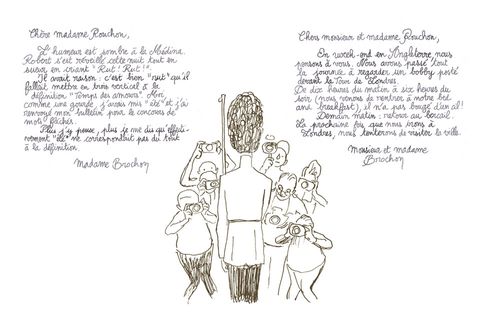 Chère madame Rouchon,
L'humeur est sombre à la Médina.
Robert s'est réveillé cette nuit tout en
sueur, en criant "Rut! Rut!".
Il avait raison : c'est bien "rut" qu'il
fallait mettre en trois vertical à la
définition "Temps des amours". Moi,
comme une gourde, j'avais mis "été" et j'ai
renvoyé mon bulletin pour le concours de
mots fléchés.
Plus j'y pense, plus je me dis qu'effecti-
vement "été" ne correspondait pas du tout
à la définition.
Madame Brochon
Chers monsieur et madame Rouchon,
En week-end en Angleterre, nous
pensons à vous. Nous avons passé tout
la journée à regarder un bobby posté
devant la Tour de Londres.
De dix heures du matin à six heures du
soir (nous venons de rentrer à notre bed
and breakfast), il n'a pas bougé d'un œil!
Demain matin : retour au bercail.
La prochaine fois que nous irons à
Londres, nous tenterons de visiter la ville.
Monsieur et madame
Brochon